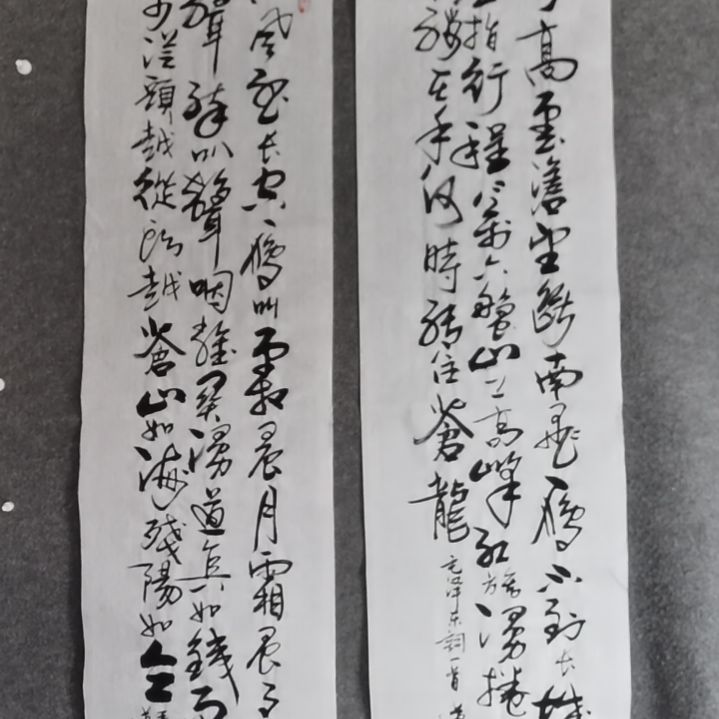 高雲澹望斷南飛雁不到长城
指行程二萬六盤山上高峰紅旗漫捲
纓在手何時縛住蒼龍
毛泽东詞一首
風烈长空雁叫霜晨月霜晨月
聲碎叭聲咽雄関漫道真如鐵而
步從頭越從頭越蒼山如海殘陽如血